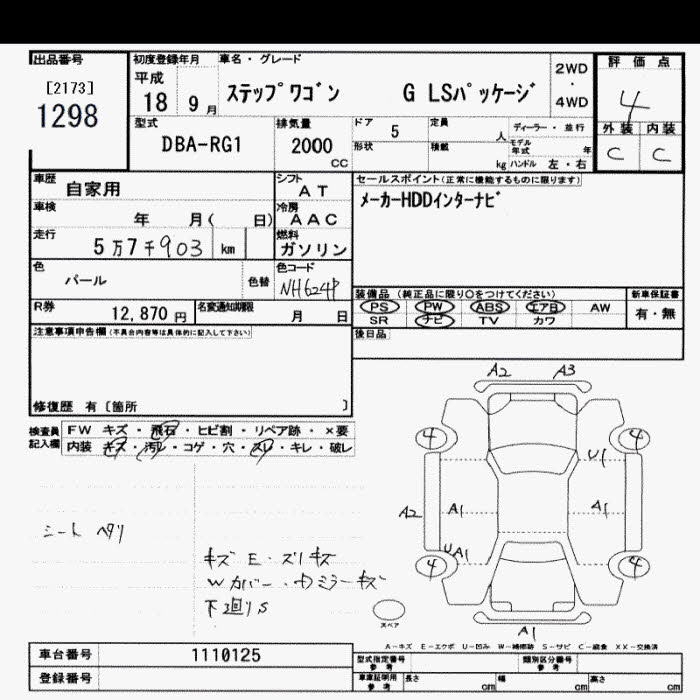 出品番号
[2173]
1298
初度登録年月
平成
18 9月
車名・グレード
ステップワゴン G LSパッケージ
2WD
・
4WD
評価点
4
外装 内装
C C
型式
DBA-RG1
排気量
2000
CC
ドア 5
定員 人
形状
積載 kg
ディーラー・並行
モデル年式 年
ハンドル 左・右
車歴 自家用
シフト AT
車検 年 月( 日)
冷房 AAC
走行 5万7千903 km
燃料 ガソリン
色 パール
色替
色コード NH624P
R券 12,870円
名変通知期限 月 日
セールスポイント(正常に機能するものに限ります)
メーカーHDDインターナビ
装備品 (純正品に限り○をつけてください)
PS PW ABS エアB AW
SR ナビ TV カワ
新車保証書
有・無
後日品
注意事項申告欄(不具合内容等は具体的に記入して下さい)
修復歴 有〔箇所 〕
検査員記入欄
FW キズ・飛石・ヒビ割・リペア跡・×要
内装 キズ・汚レ・コゲ・穴・スレ・キレ・破レ
シート ヘタリ
キズ E・ズリキズ
Wカバー・ミラーキズ
下廻りS
A2 A3
4 4
U1
A2 A1 A1
UA1
4 4
スペア
A1
A－キズ E－エクボ U－凹み W－補修跡 S－サビ C－腐食 XX－交換済
車台番号 1110125
登録番号
型式指定番号 参考
類別区分番号 参考
車庫証明用 参考
長さ cm 幅 cm 高さ cm